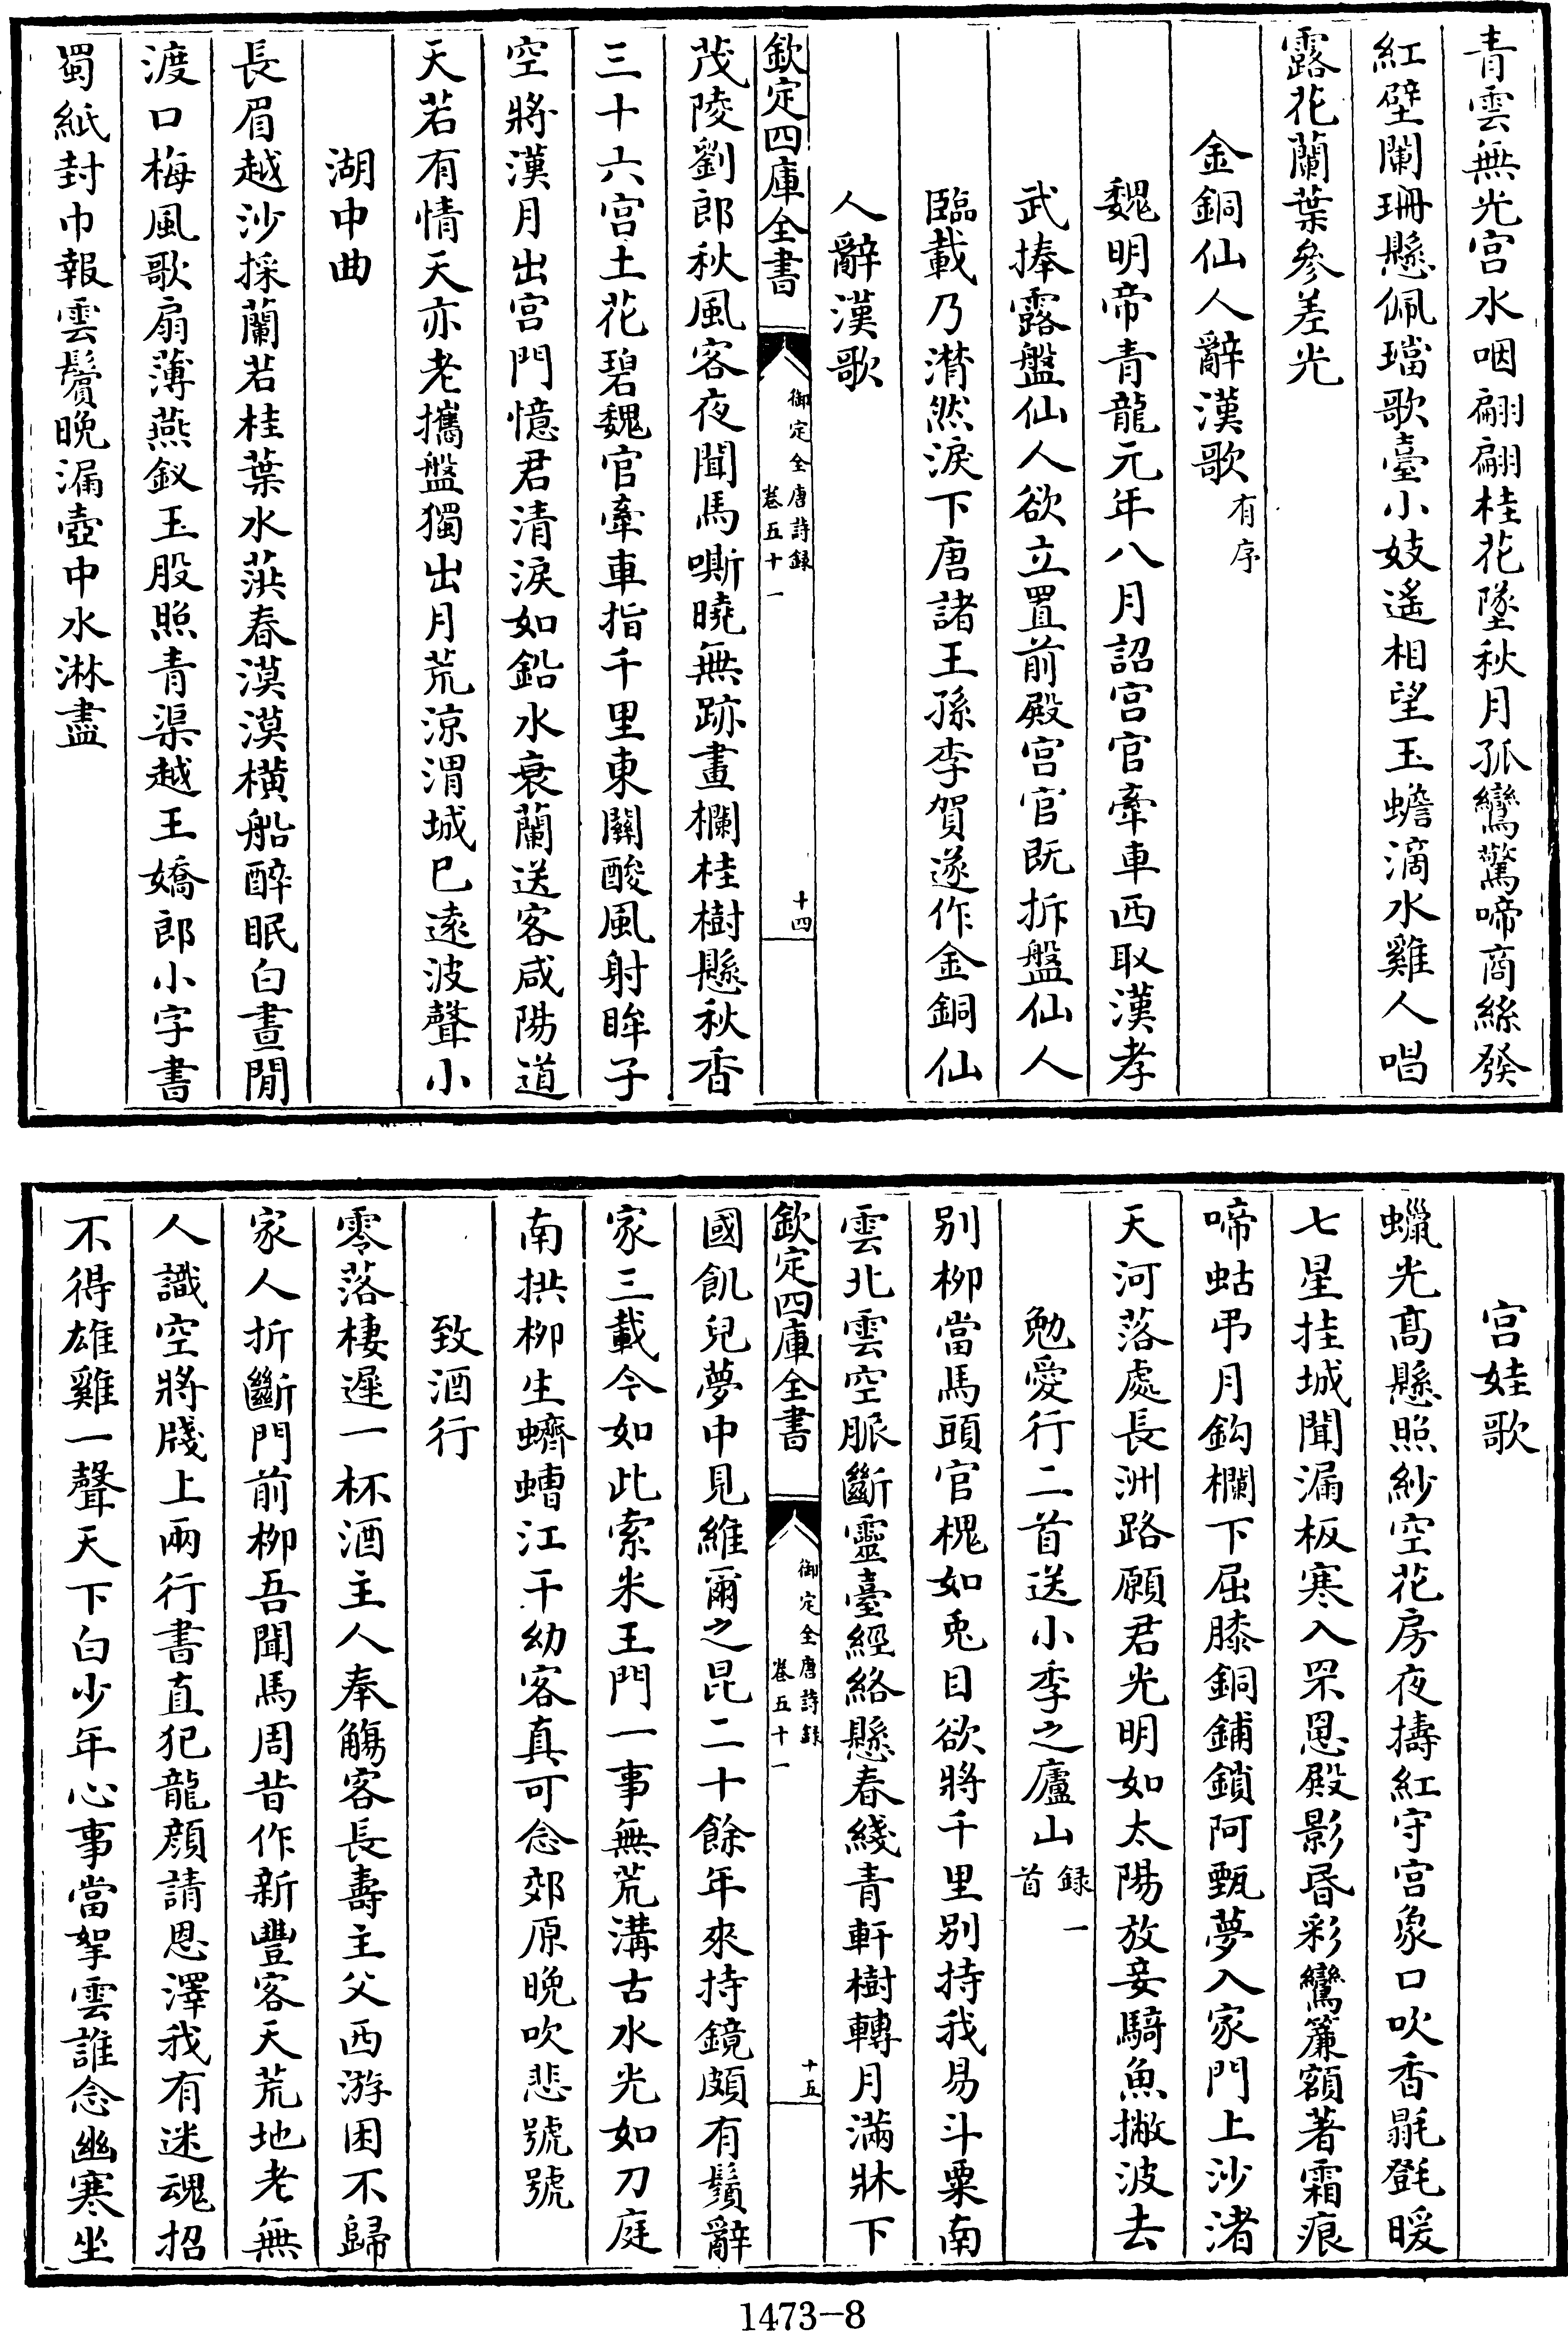 青雲無光宫水咽翩翩桂花墜秋月孤鸞驚啼商絲發
紅壁闌珊懸佩璫歌臺小妓遙相望玉蟾滴水雞人唱
露花蘭葉參差光
金銅仙人辭漢歌有序
魏明帝青龍元年八月詔宫官牽車西取漢孝
武捧露盤仙人欲立置前殿宫官既拆盤仙人
臨載乃潸然淚下唐諸王孫李賀遂作金銅仙
人辭漢歌
欽定四庫全書
御定全唐詩録
卷五十一
十四
茂陵劉郎秋風客夜聞馬嘶曉無跡畫欄桂樹懸秋香
三十六宫土花碧魏官牽車指千里東關酸風射眸子
空將漢月出宫門憶君清淚如鉛水衰蘭送客咸陽道
天若有情天亦老攜盤獨出月荒涼渭城已遠波聲小
湖中曲
長眉越沙採蘭若桂葉水葓春漠漠橫船醉眠白晝閒
渡口梅風歌扇薄燕釵玉股照青渠越王嬌郎小字書
蜀紙封巾報雲鬢晚漏壺中水淋盡
宫娃歌
蠟光髙懸照紗空花房夜擣紅守宫象口吹香毾㲪暖
七星挂城聞漏板寒入罘罳殿影昏彩鸞簾額著霜痕
啼蛄弔月鈎欄下屈膝銅鋪鎖阿甄夢入家門上沙渚
天河落處長洲路願君光明如太陽放妾騎魚撇波去
勉愛行二首送小季之廬山録一首
别柳當馬頭官槐如兎目欲將千里别持我易斗粟南
雲北雲空脈斷靈臺經絡懸春綫青軒樹轉月滿牀下
欽定四庫全書
御定全唐詩録
卷五十一
十五
國飢兒夢中見維爾之昆二十餘年來持鏡頗有鬚辭
家三載今如此索米王門一事無荒溝古水光如刀庭
南拱柳生蠐螬江干幼客真可念郊原晚吹悲號號
致酒行
零落棲遲一杯酒主人奉觴客長壽主父西游困不歸
家人折斷門前柳吾聞馬周昔作新豐客天荒地老無
人識空將牋上兩行書直犯龍顔請恩澤我有迷魂招
不得雄雞一聲天下白少年心事當拏雲誰念幽寒坐
1473-8